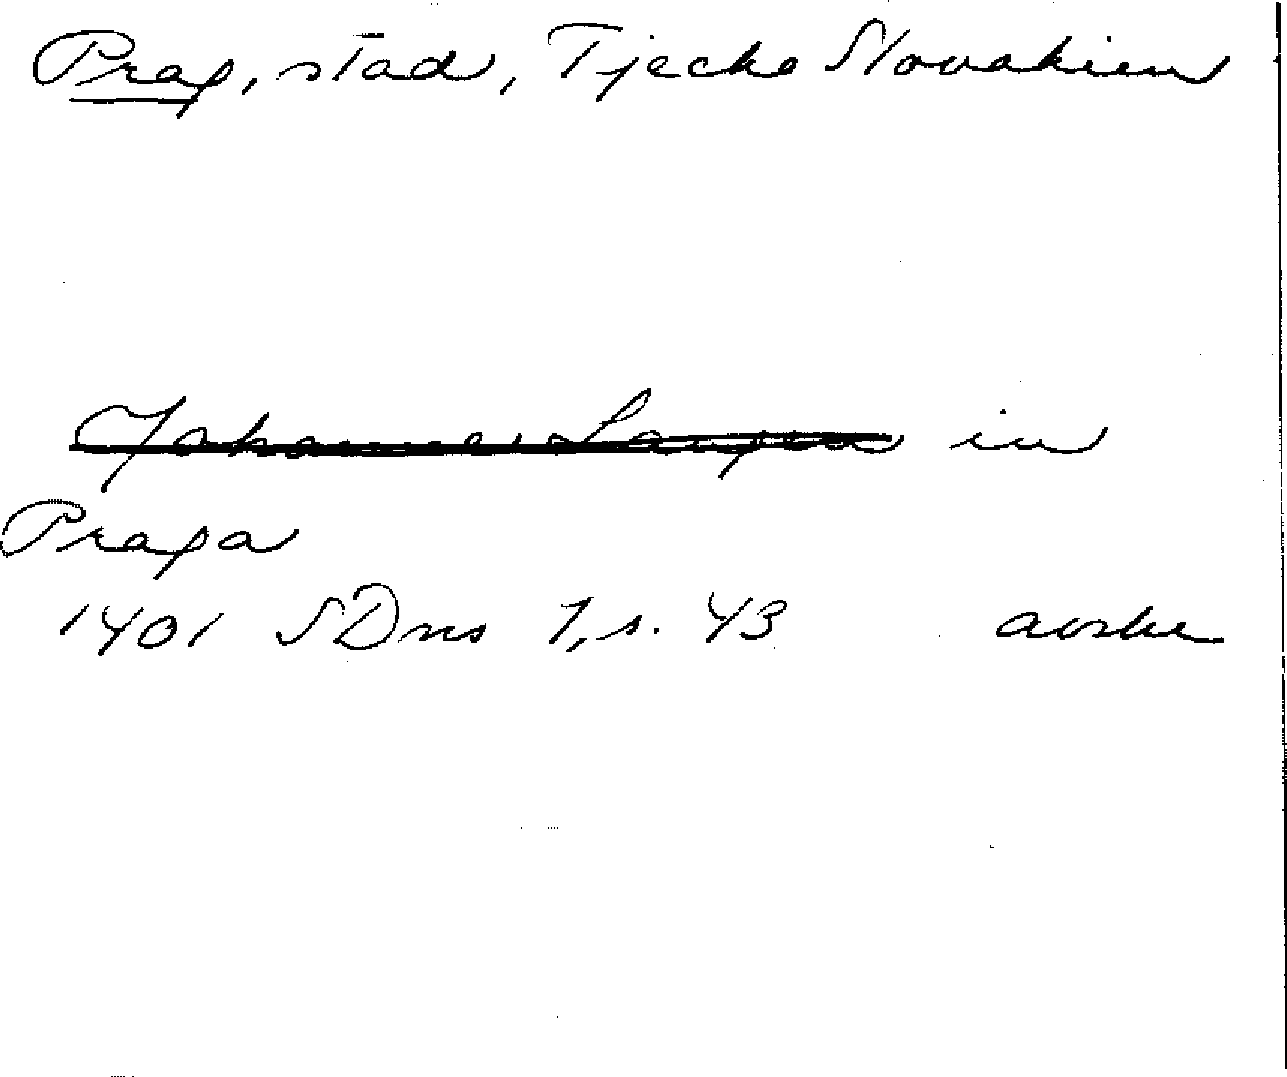 Prag, stad, Tjecko Slovakien
Johannes in
Praga
1401 SDns 1, s. 43 avskr